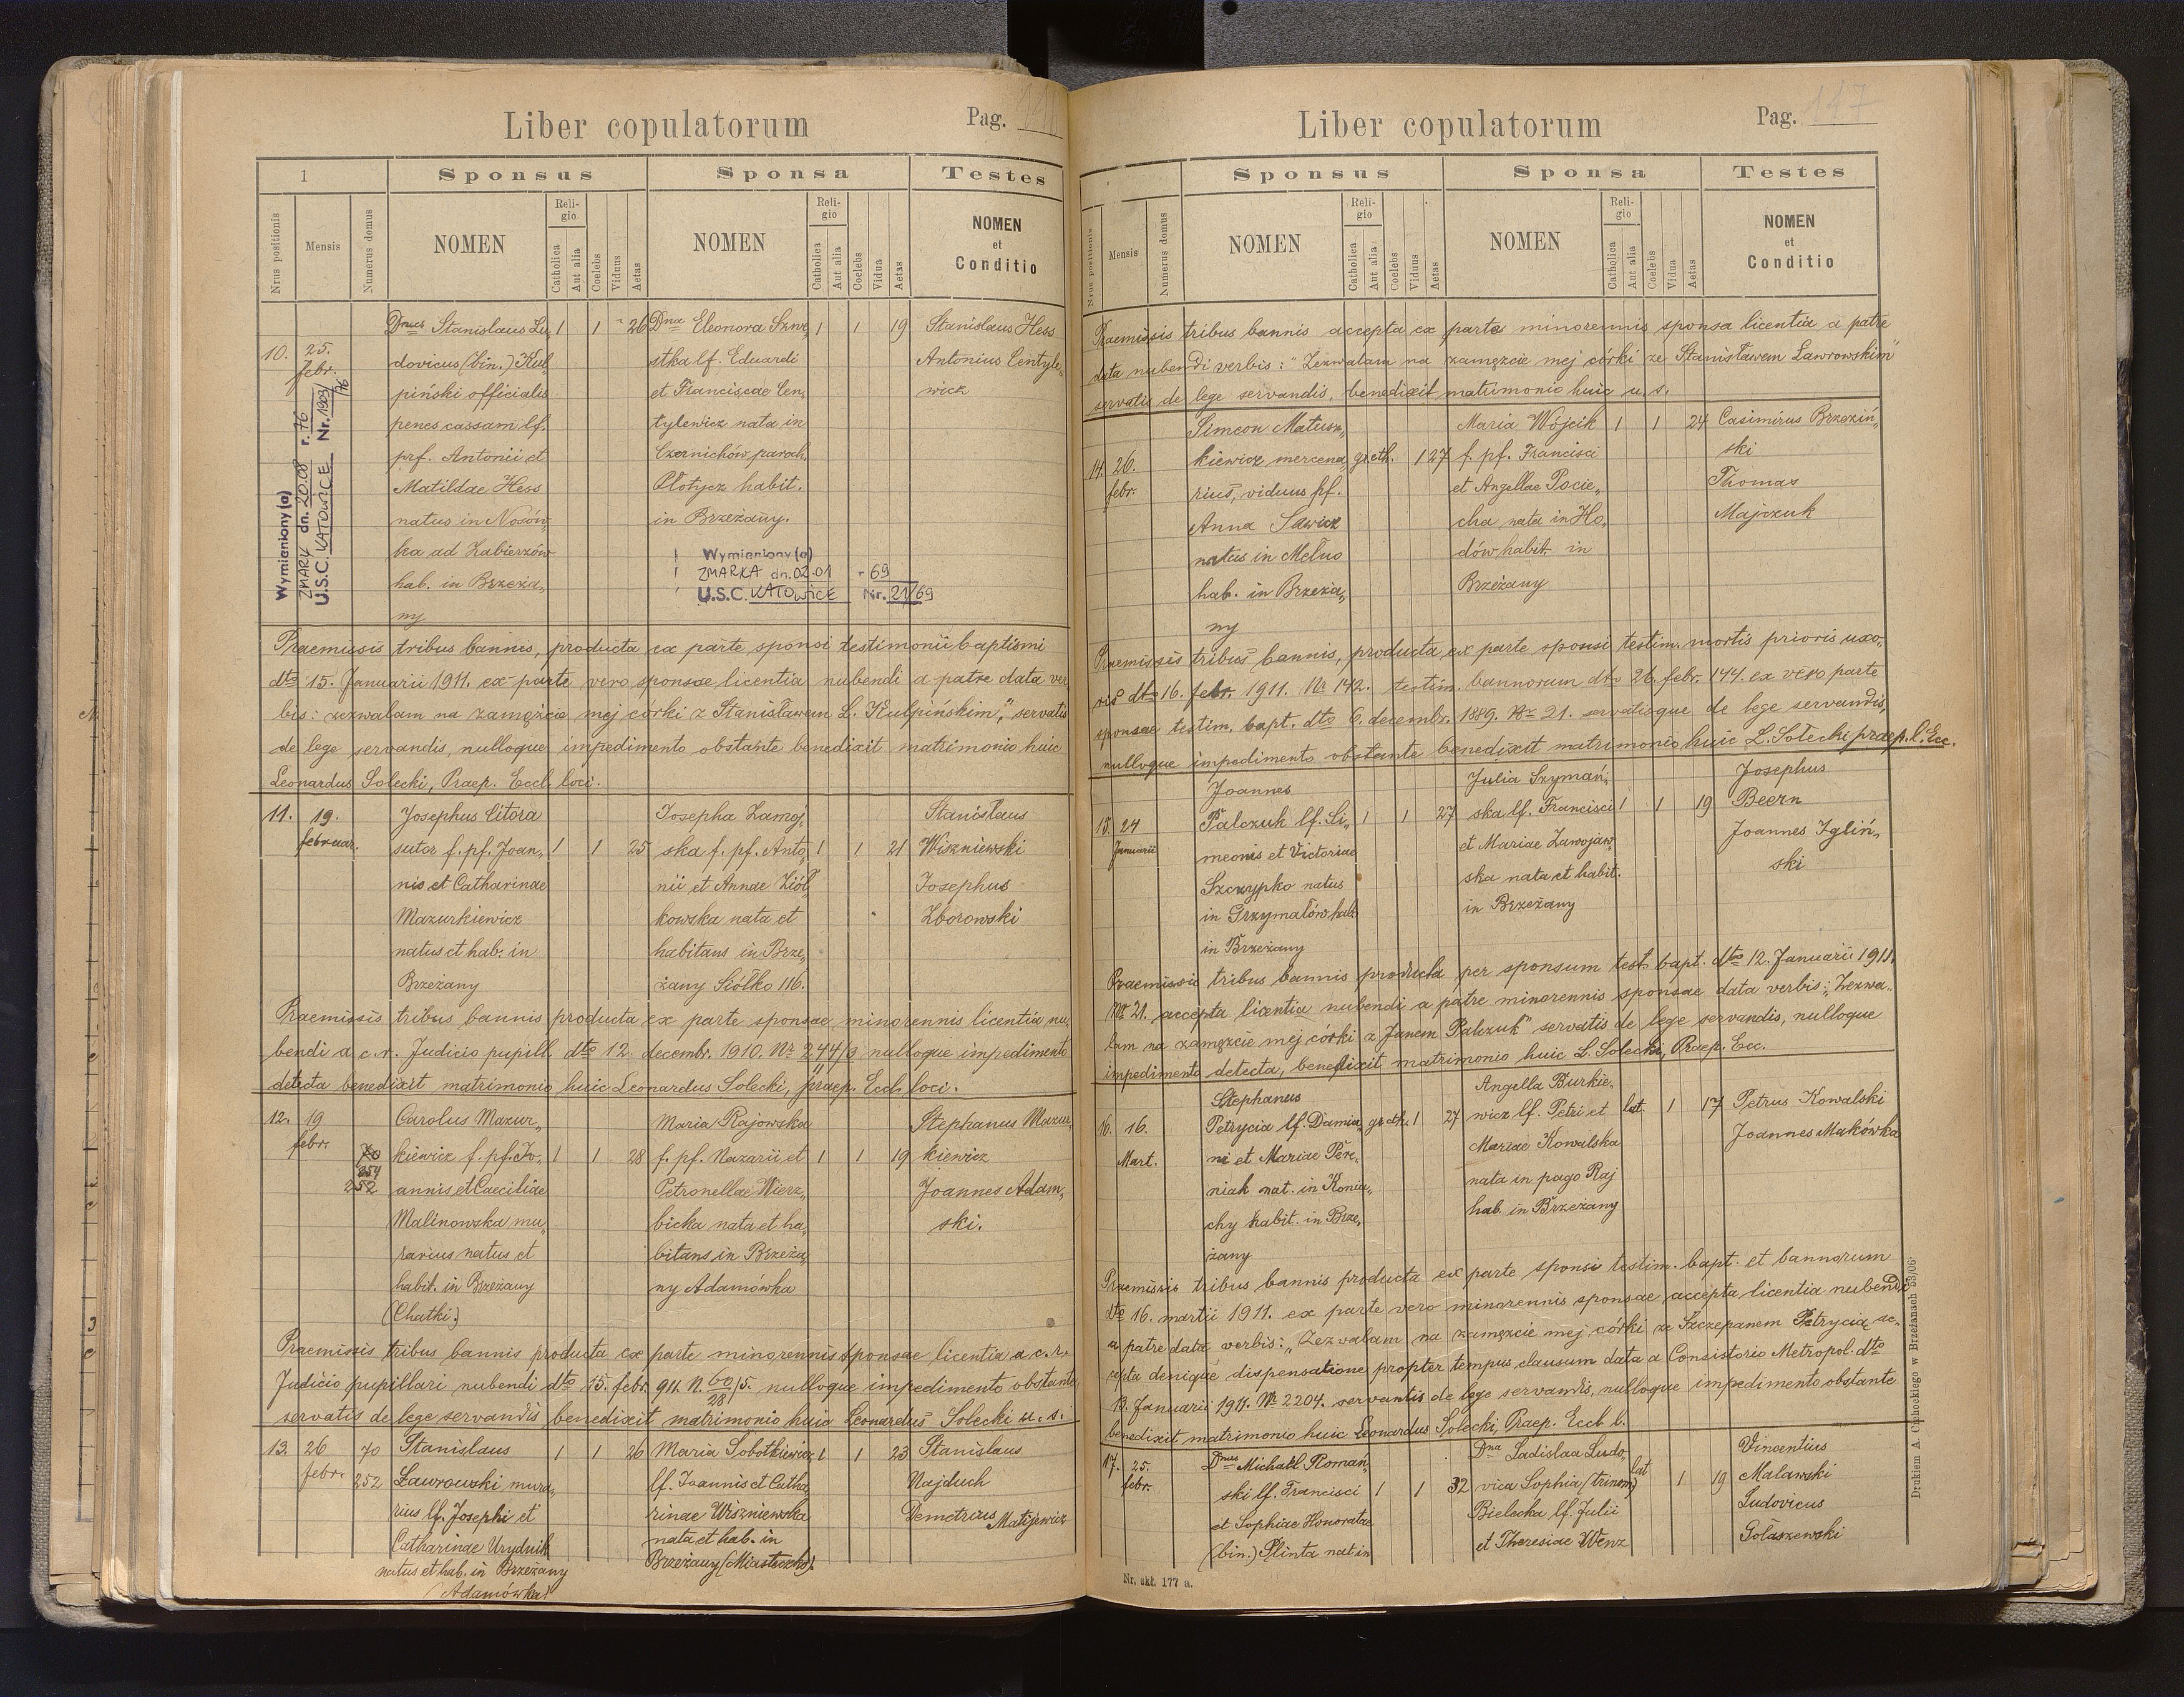 Liber copulatorum
Pag.
1
Sponsus
Sponsa
Testes
Nrus positionis
Mensis
Numerus domus
NOMEN
Religio
Catholica
Aut alia
Coelebs
Viduus
Aetas
NOMEN
Religio
Catholica
Aut alia
Coelebs
Vidua
Aetas
NOMEN
et
Conditio
10.
25.
febr.
Dnus Stanislaus Lu„
dovicus (bin.) Kul„
piński officialis
penes cassam lf.
prf. Antonii et
Matildae Hess
natus in Nosów„
ka ad Zabierzów
hab. in Brzeża„
ny
1 1 26
Dna Eleonora Szwe„
stka lf. Eduardi
et Franciscae Cen„
tylewicz nata in
Czernichów paroch.
Płotycz habit.
in Brzeżany.
1 1 19
Stanislaus Hess
Antonius Centyle„
wicz
Wymieniony(a)
ZMARŁ dn. 20.08 r. 76
U.S.C. KATOWICE Nr. 1903/76
Wymieniony(a)
ZMARŁA dn. 02.01 r 69
U.S.C. KATOWICE Nr. 21/69
Praemissis tribus bannis, producta ex parte sponsi testimonii baptismi
dto 15. Januarii 1911. ex parte vero sponsae licentia nubendi a patre data ver„
bis: zezwalam na zamęźcie mej córki z Stanisławem L. Kulpińskim", servatis
de lege servandis, nulloque impedimento obstante benedixit matrimonio huic
Leonardus Solecki, Praep. Eccl. loci.
11.
19.
februar.
Josephus Citora
sutor f. pf. Joan„
nis et Catharinae
Mazurkiewicz
natus et hab. in
Brzeżany
1 1 25
Josepha Zamoj„
ska f. pf. Anto„
nii et Annae Ziół„
kowska nata et
habitans in Brze„
żany Siółko 116.
1 1 21
Stanislaus
Wiszniewski
Josephus
Zborowski
Praemissis tribus bannis producta ex parte sponsae minorennis licentia nu„
bendi a c. r. Judicio pupill. dto 12. decembr. 1910. Nr 244/9 nulloque impedimento
detecta benedixit matrimonio huic Leonardus Solecki, praep. Eccl. loci.
12.
19
febr.
70
354
252
Carolus Mazur„
kiewicz f. pf. Jo„
annis et Caeciliae
Malinowska mu„
rarius natus et
habit. in Brzeżany
(Chatki)
1 1 28
Maria Rajowska
f. pf. Nazarii et
Petronellae Wierz„
bicka nata et ha„
bitans in Brzeża„
ny Adamówka
1 1 19
Stephanus Mazur„
kiewicz
Joannes Adam„
ski.
Praemissis tribus bannis producta ex parte minorennis sponsae licentia a c. r.
Judicio pupillari nubendi dto 15. febr. 911. N. 60/28/5. nulloque impedimento obstante
servatis de lege servandis benedixit matrimonio huic Leonardus Solecki u. s.
13.
26
febr.
70
252
Stanislaus
Ławrowski mura„
rius lf. Josephi et
Catharinae Urydnik
natus et hab. in Brzeżany
(Adamówka)
1 1 26
Maria Sobotkiewicz
lf. Joannis et Catha„
rinae Wiszniewska
nata et hab. in
Brzeżany (Miasteczko).
1 1 23
Stanislaus
Najduch
Demetrius
Matijewicz
Liber copulatorum
Pag. 147
Sponsus
Sponsa
Testes
Nrus positionis
Mensis
Numerus domus
NOMEN
Religio
Catholica
Aut alia
Coelebs
Viduus
Aetas
NOMEN
Religio
Catholica
Aut alia
Coelebs
Vidua
Aetas
NOMEN
et
Conditio
Praemissis tribus bannis accepta ex parte minorennis sponsa licentia a patre
data nubendi verbis: "Zezwalam na zamęzcie mej córki ze Stanisławem Ławrowskim"
servatis de lege servandis, benedixit matrimonio huic u. s.
14.
26.
febr.
Simeon Matusz„
kiewicz mercena„
rius, viduus pf.
Anna Sawicz
natus in Mełno
hab. in Brzeża„
ny
gr. cth. 1 27
Maria Wójcik
f. pf. Francisci
et Angellae Pocie„
cha nata in Ho„
dów habit. in
Brzeżany
1 1 24
Casimirus Brzeziń„
ski
Thomas
Majczuk
Praemissis tribus bannis, producta ex parte sponsi testim. mortis prioris uxo„
ris dto 16. febr. 1911. No 142. testim. bannorum dto 26. febr. 144. ex vero parte
sponsae testim. bapt. dto 6. decembr. 1889. Nr 21. servatisque de lege servandis,
nulloque impedimento obstante benedixit matrimonio huic L. Solecki praep. l. Ecc.
15.
24
Januarii
Joannes
Palczuk lf. Si„
meonis et Victoriae
Szczypko natus
in Grzymałów hab.
in Brzeżany
1 1 27
Julia Szymań„
ska lf. Francisci
et Mariae Zawojaw„
ska nata et habit.
in Brzeżany
1 1 19
Josephus
Beern
Joannes Igliń„
ski
Praemissis tribus bannis producta per sponsum test. bapt. dto 12. Januarii 1911.
No 21. accepta licentia nubendi a patre minorennis sponsae data verbis: „Zezwa„
lam na zamęzcie mej córki z Janem Palczuk" servatis de lege servandis, nulloque
impedimento detecta, benedixit matrimonio huic L. Solecki, Praep. Ecc.
16.
16.
Mart.
Stephanus
Petrycia lf. Damia„
ni et Mariae Pere„
niak nat. in Koniu„
chy habit. in Brze„
żany
gr. cth. 1 27
Angella Burkie„
wicz lf. Petri et
Mariae Kowalska
nata in pago Raj
hab. in Brzeżany
lat. 1 17
Petrus Kowalski
Joannes Makówka
Praemissis tribus bannis producta ex parte sponsi testim. bapt. et bannorum
dto 16. martii 1911. ex parte vero minorennis sponsae, accepta licentia nubendi
a patre data verbis: „Zezwalam na zamęzcie mej córki ze Szczepanem Petrycią ac„
cepta denique dispensatione propter tempus clausum data a Consistorio Metropol. dto
13. Januarii 1911. No 2204. servantis de lege servandis, nulloque impedimento obstante
benedixit matrimonio huic Leonardus Solecki, Praep. Eccl. l.
17.
25.
febr.
Dnus Michaël Roman„
ski lf. Francisci
et Sophiae Honoratae
(bin.) Plinta nat in
1 1 32
Dna Ladislaa Ludo„
vica Sophia (trinom)
Bielecka lf. Julii
et Theresiae Wenz
lat 1 19
Vincentius
Malawski
Ludovicus
Gołaszewski
Nr. skł. 177 a.
Drukiem A. Cichockiego w Brzeżanach 53/06.